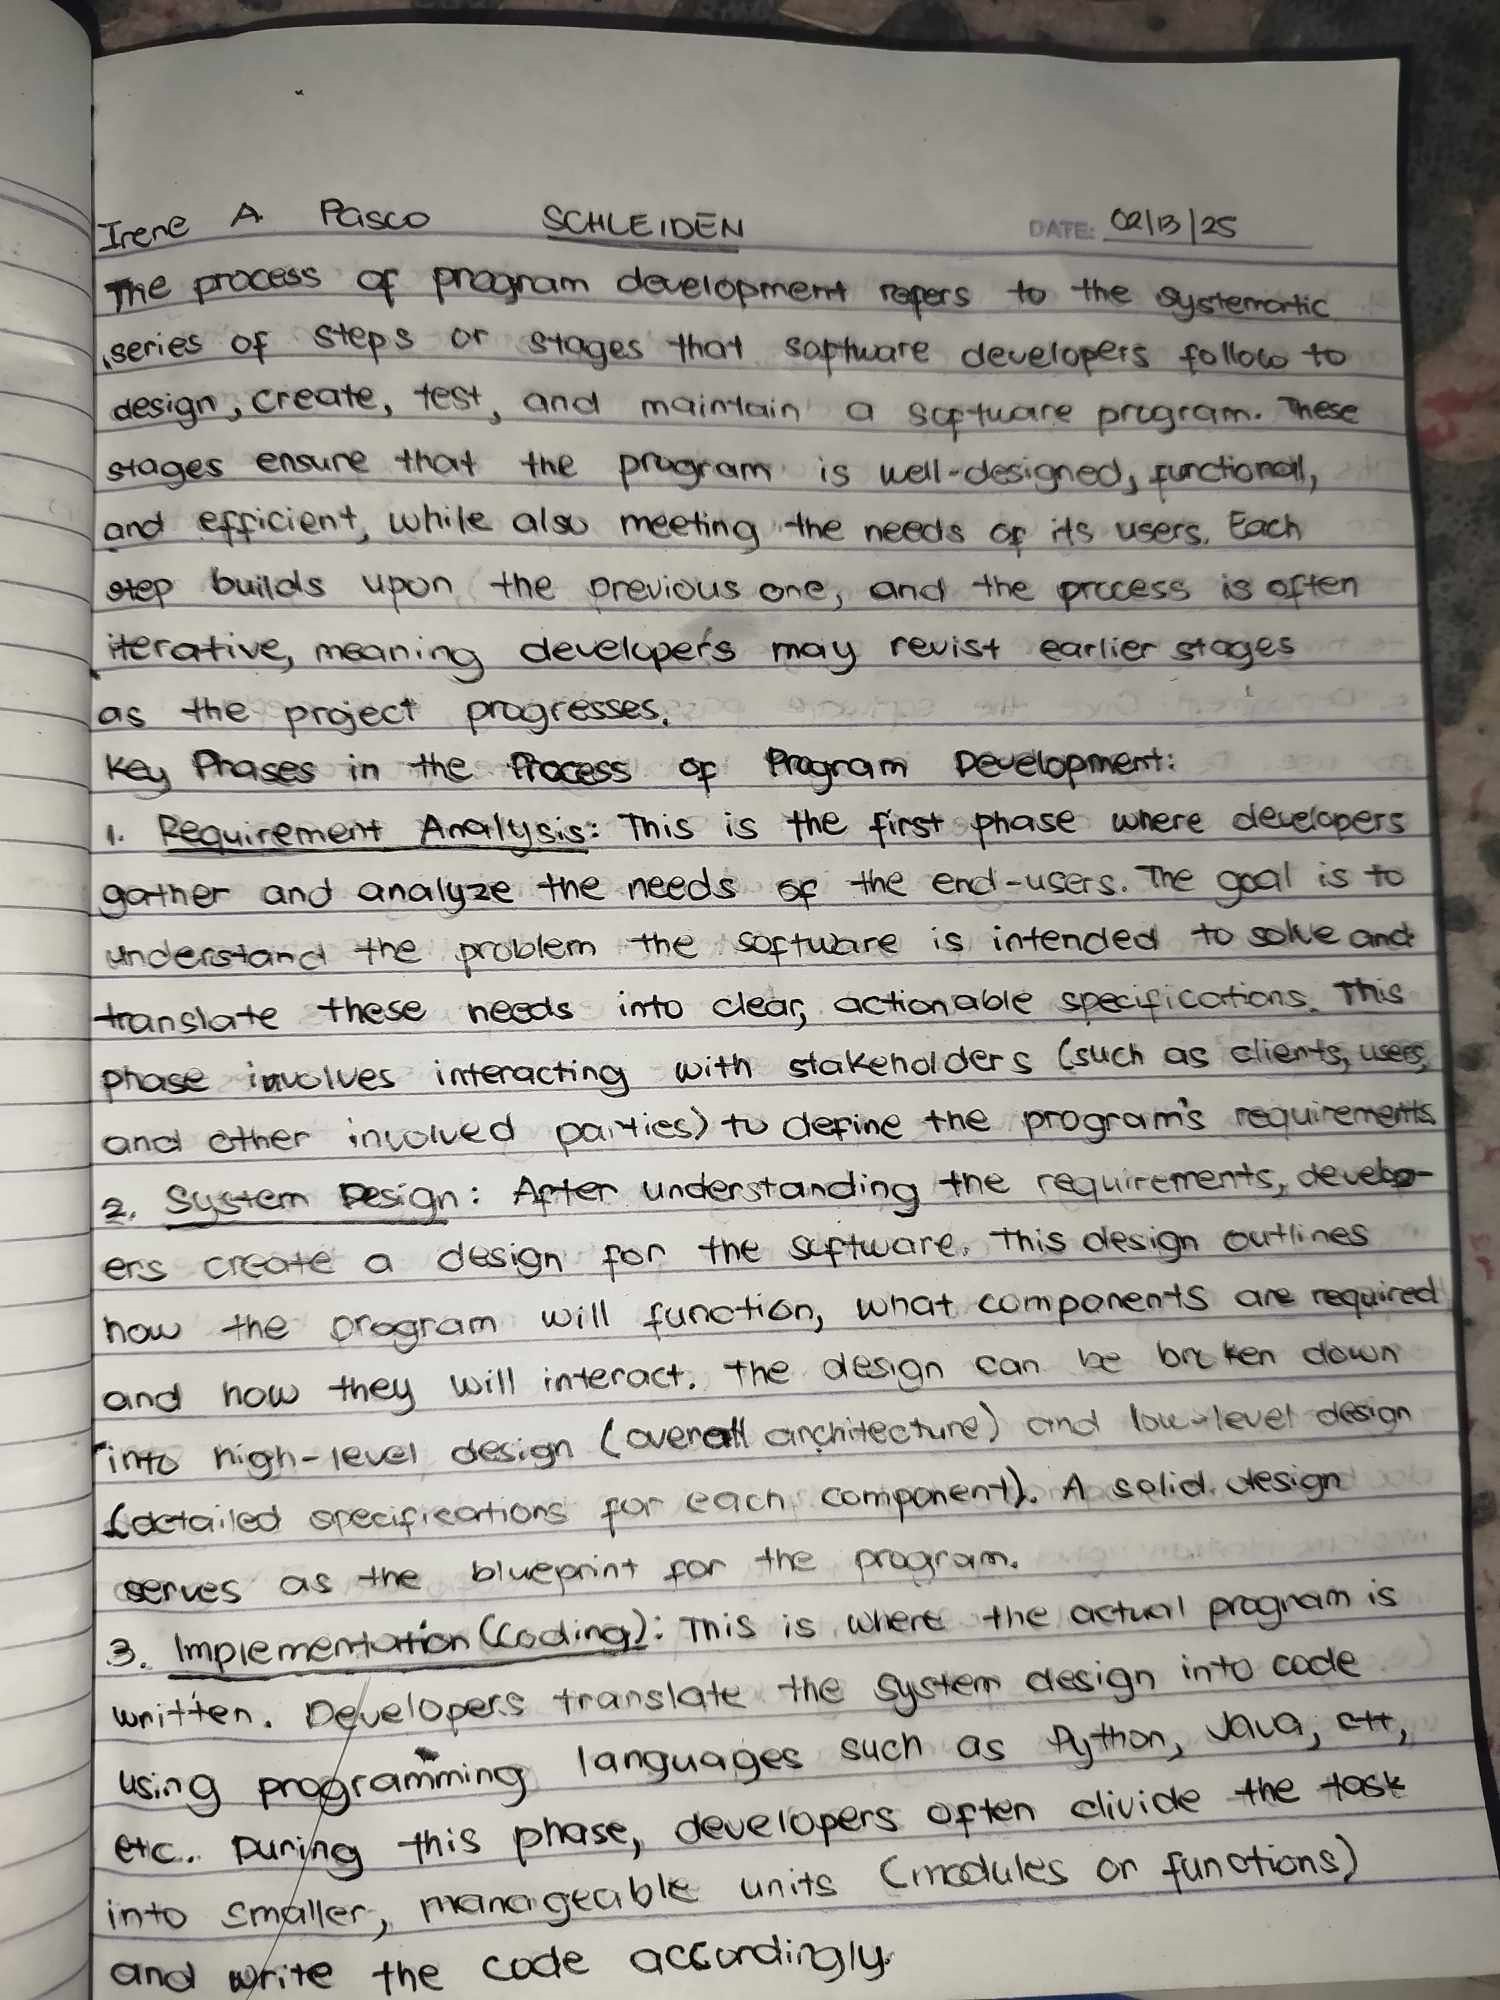 Irene A. Pasco SCHLEIDEN DATE: 02/13/25
The process of program development refers to the systematic
series of steps or stages that software developers follow to
design, create, test, and maintain a software program. These
stages ensure that the program is well-designed, functional,
and efficient, while also meeting the needs of its users. Each
step builds upon the previous one, and the process is often
iterative, meaning developers may revist earlier stages
as the project progresses.
Key Phases in the Process of Program Development:
1. Requirement Analysis: This is the first phase where developers
gather and analyze the needs of the end-users. The goal is to
understand the problem the software is intended to solve and
translate these needs into clear, actionable specifications. This
phase involves interacting with stakeholders (such as clients, users,
and other involved parties) to define the program's requirements
2. System Design: After understanding the requirements, develop-
ers create a design for the software. This design outlines
how the program will function, what components are required
and how they will interact. The design can be broken down
into high-level design (overall architecture) and low-level design
(detailed specifications for each component). A solid design
serves as the blueprint for the program.
3. Implementation (Coding): This is where the actual program is
written. Developers translate the system design into code
using programming languages such as Python, Java, C++,
etc. During this phase, developers often divide the task
into smaller, manageable units (modules or functions)
and write the code accordingly.